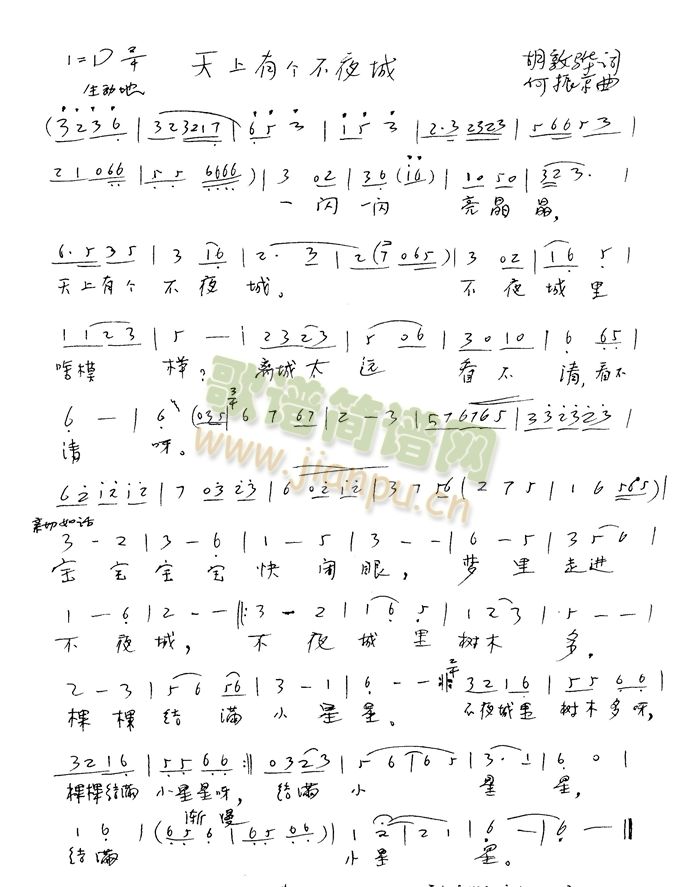 1=D 2/4
天上有个不夜城
胡敦骅词
何振京曲
生动地
(3 2 3 6 | 3 2 3 2 1 7 | 6 5 3 | i 5 3 | 2·3 2323 | 5 6 6 5 3 |
2 1 0 6 6 | 5 5 6666) | 3 02 | 36 (i6) | 10 50 | 3 2 3· |
一闪一闪 亮晶晶,
6·5 35 | 3 16 | 2· 3 | 2 (7 065) | 3 02 | 16 5 |
天上有个 不夜城。 不夜城里
11 23 | 5 — | 23 23 | 5 06 | 30 10 | 6 65 |
啥模样? 离城太远 看不清,看不
6 — | 6 (035 | 3/4 6 7 67 | 2 — 3 | 576765 | 332323 |
清呀。
6 2 i 2 i 2 | 7 03 23 | 6 02 i2 | 3 7 56 (2 7 5 | 1 6 565) |
亲切如话
3 - 2 | 3 - 6 | 1 - 5 | 3 - - | 6 - 5 | 3 5 6 |
宝宝宝宝快闭眼, 梦里走进
1 - 6 | 2 - - ‖: 3 - 2 | 1 6 5 | 1 2 3 | 5 - - |
不夜城, 不夜城里树木多。
2 - 3 | 5 6 56 | 3 - 1 | 6 - - :‖ 2/4 32 16 | 55 66 |
棵棵结满小星星。 不夜城里 树木多呀,
32 16 | 55 66 :‖ 03 23 | 5 6 | 6 5 | 3· 1 | 6 0 |
棵棵结满 小星星呀, 结满小星星,
渐慢
1 6 | (65 6 | 65 66) | 1 2 | 2 1 | 6 — | 6 — ‖
结满 小星星。
歌谱简谱网
www.jianpu.cn